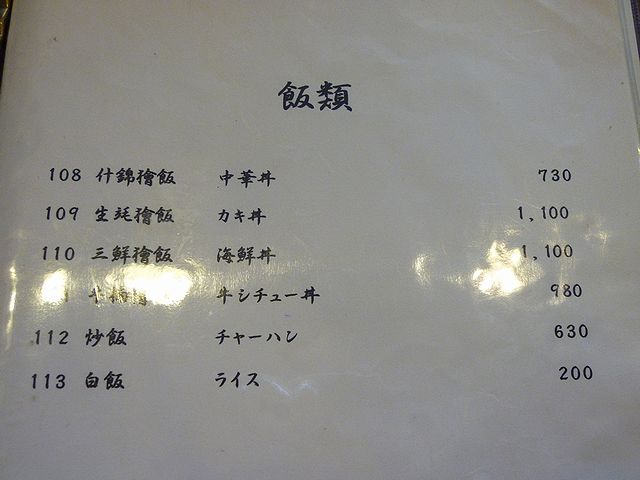 飯類
108 什錦獪飯 中華丼 730
109 生蚝獪飯 カキ丼 1,100
110 三鮮獪飯 海鮮丼 1,100
牛シチュー丼 980
112 炒飯 チャーハン 630
113 白飯 ライス 200